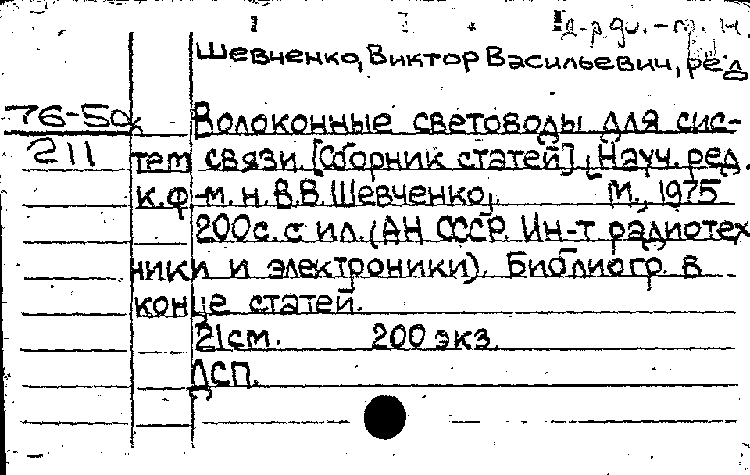 д-р ди. - т. н.
Шевченко, Виктор Васильевич, ред
76-50
211
Волоконные световоды для сис-
тем связи. [Сборник статей]. [Науч. ред.
к.ф-м.н. В.В. Шевченко]. М., 1975
200 с. с ил. (АН СССР. Ин-т радиотех
ники и электроники). Библиогр. в
конце статей.
21 см. 200 экз.
ДСП.